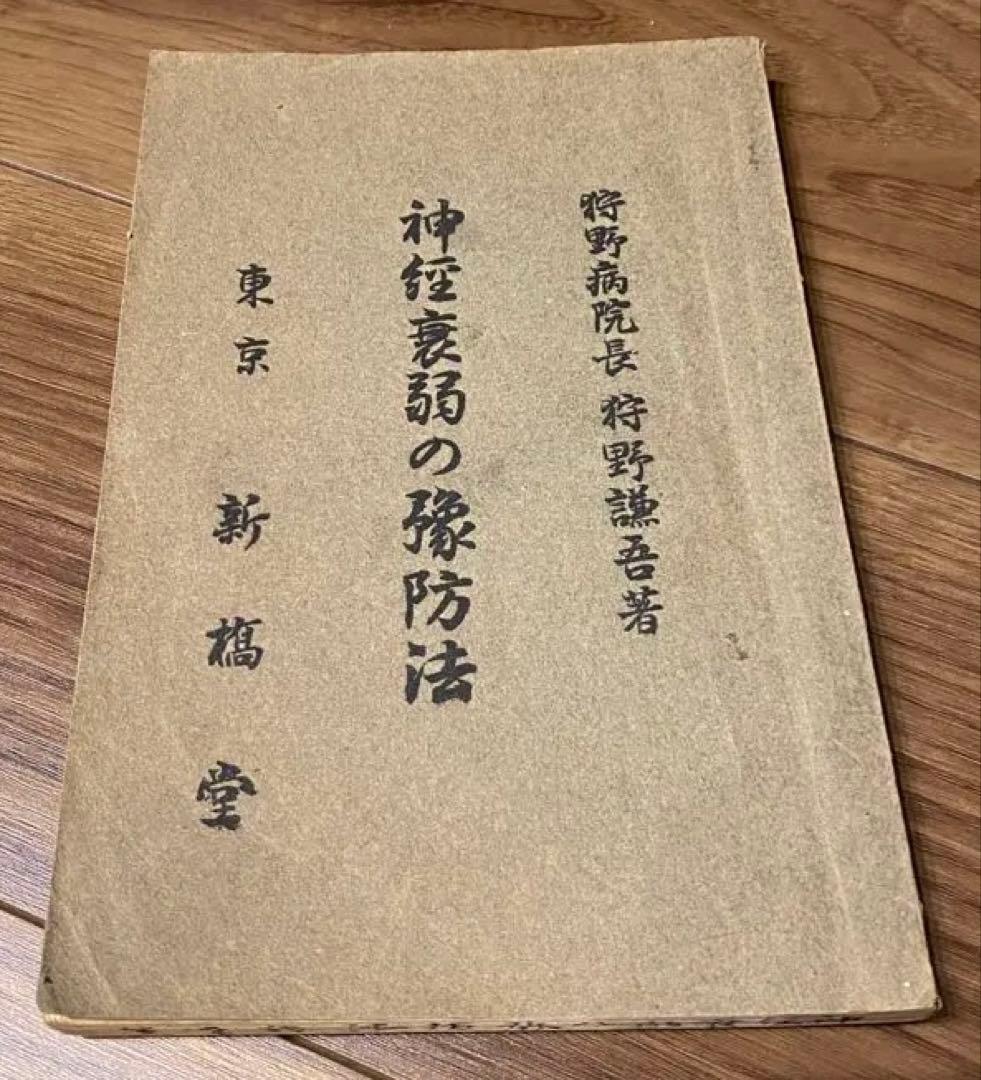 狩野病院長 狩野謙吾著
神經衰弱の豫防法
東京 新橋堂